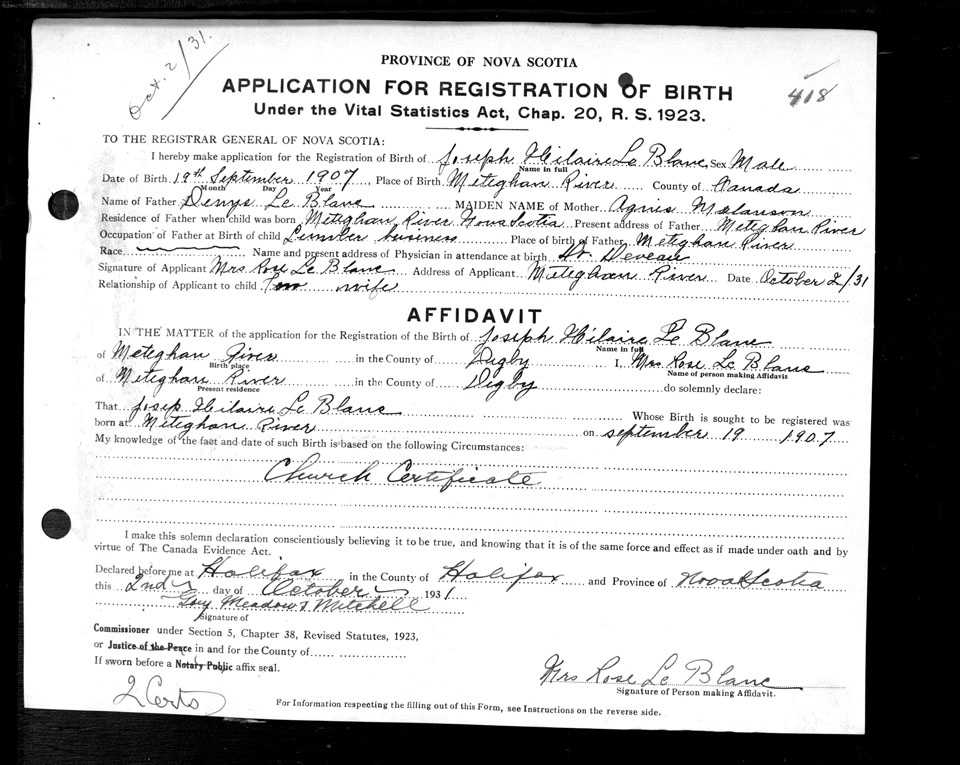 Oct. 2/31.
PROVINCE OF NOVA SCOTIA
418
APPLICATION FOR REGISTRATION OF BIRTH
Under the Vital Statistics Act, Chap. 20, R. S. 1923.
TO THE REGISTRAR GENERAL OF NOVA SCOTIA:
I hereby make application for the Registration of Birth of Joseph Hilaire Le Blanc, Sex Male
Name in full
Date of Birth 19th September 1907, Place of Birth Meteghan River County of Canada
Month Day Year
Name of Father Denys Le Blanc MAIDEN NAME of Mother Agnis Melanson
Residence of Father when child was born Meteghan River Nova Scotia Present address of Father Meteghan River
Occupation of Father at Birth of child Lumber business Place of birth of Father Meteghan River
Race Name and present address of Physician in attendance at birth Dr. Deveau
Signature of Applicant Mrs Rose Le Blanc Address of Applicant Meteghan River Date October 2/31
Relationship of Applicant to child wife
AFFIDAVIT
IN THE MATTER of the application for the Registration of the Birth of Joseph Hilaire Le Blanc
Name in full
of Meteghan River in the County of Digby I, Mrs Rose Le Blanc
Birth place Name of person making Affidavit
of Meteghan River in the County of Digby do solemnly declare:
Present residence
That Josep Hilaire Le Blanc Whose Birth is sought to be registered was
born at Meteghan River on september 19 1907
My knowledge of the fact and date of such Birth is based on the following Circumstances:
Church Certificate
I make this solemn declaration conscientiously believing it to be true, and knowing that it is of the same force and effect as if made under oath and by
virtue of The Canada Evidence Act.
Declared before me at Halifax in the County of Halifax and Province of Nova Scotia
this 2nd day of October 1931
Guy Meadows Mitchell
Signature of
Commissioner under Section 5, Chapter 38, Revised Statutes, 1923,
or Justice of the Peace in and for the County of
If sworn before a Notary Public affix seal.
Mrs Rose Le Blanc
Signature of Person making Affidavit.
2 Certs
For Information respecting the filling out of this Form, see Instructions on the reverse side.